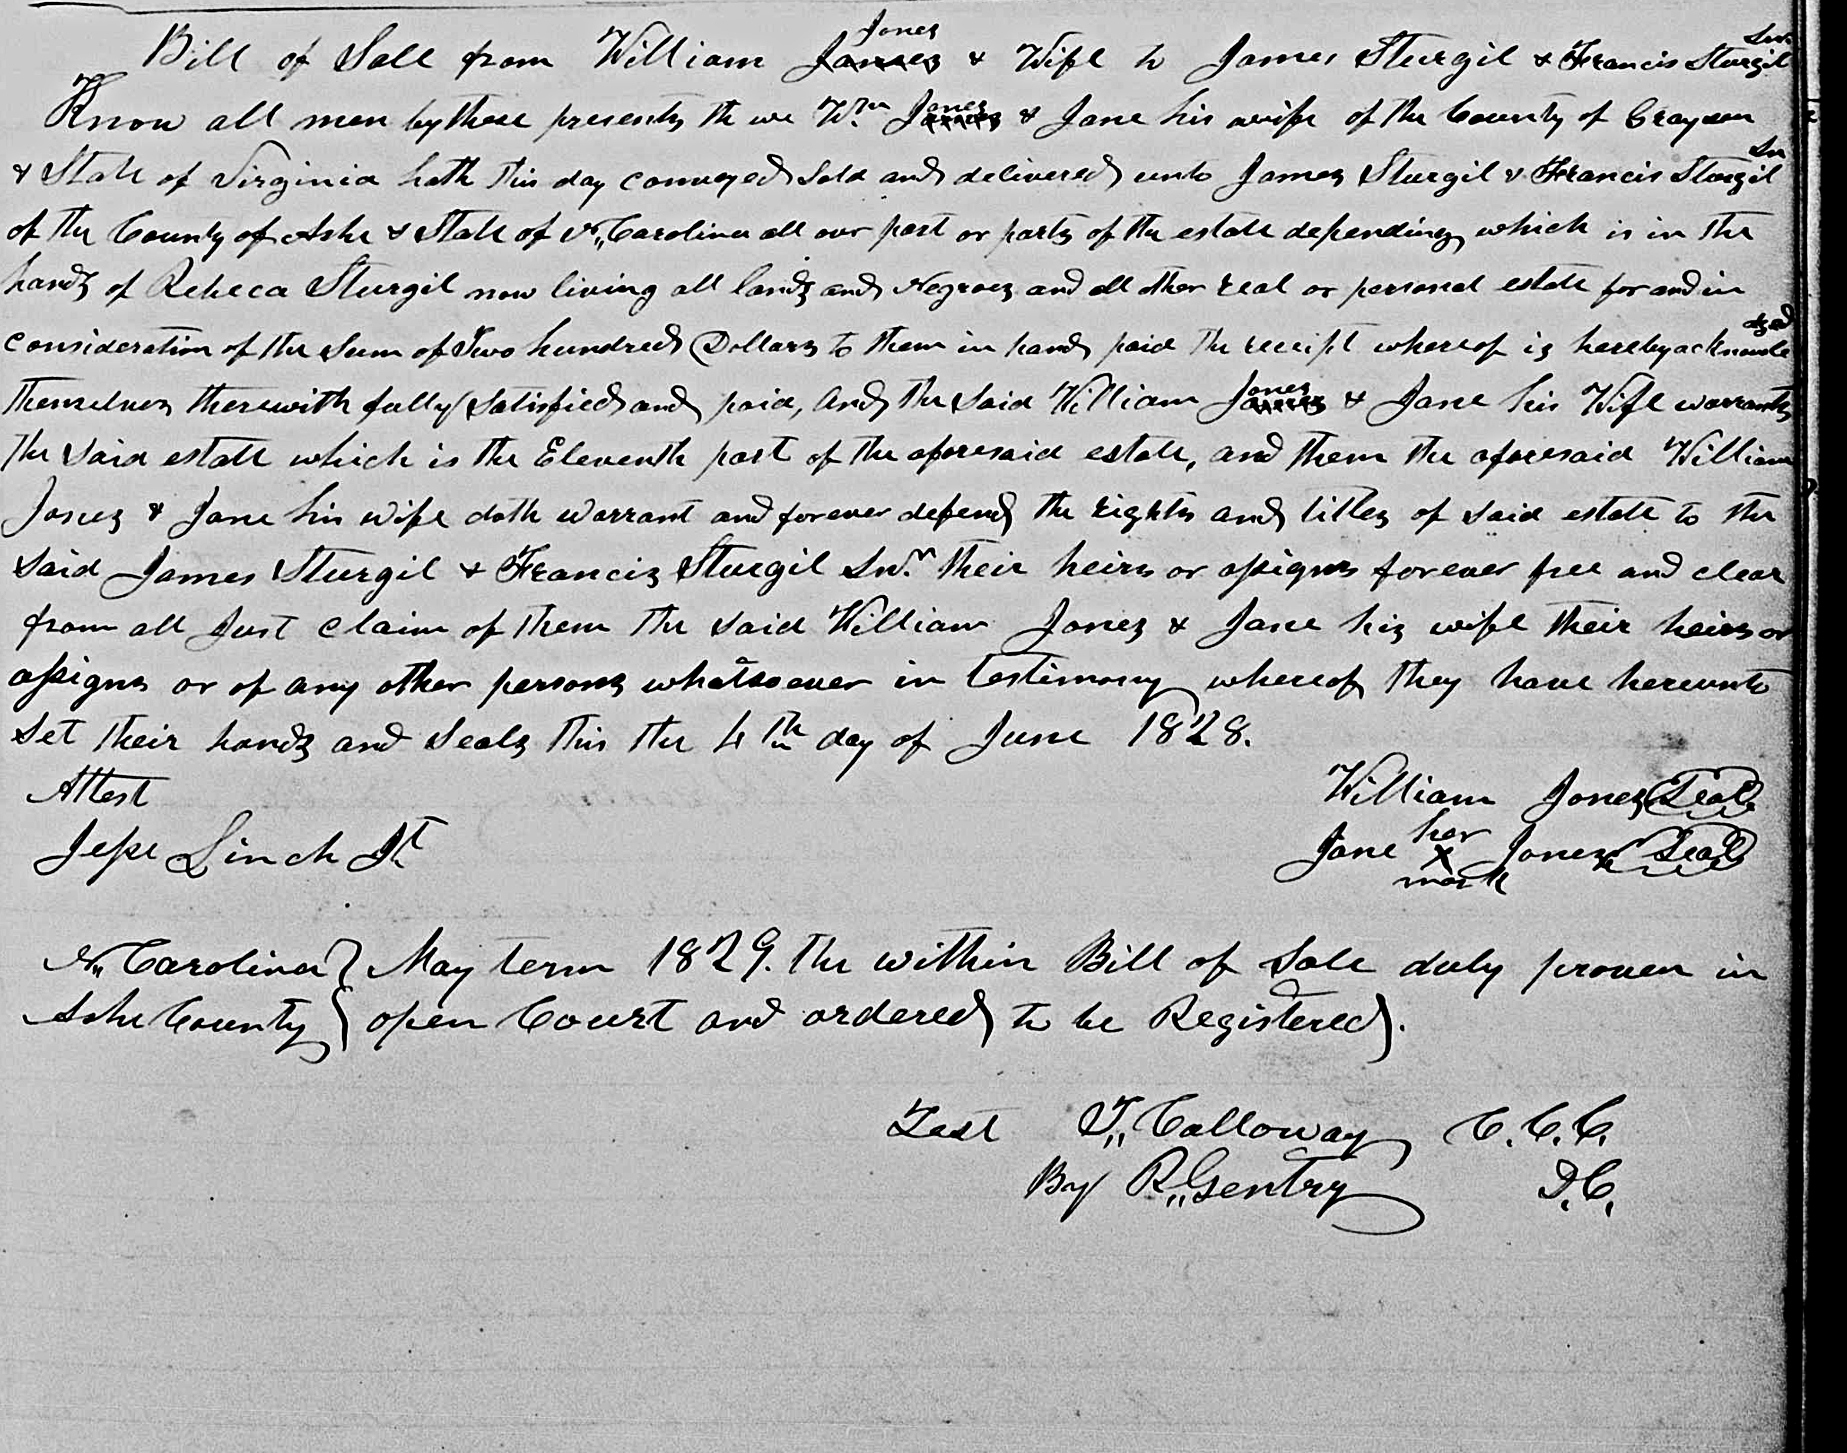 Bill of Sale from William James Jones & Wife to James Sturgil & Francis Sturgil Snr.
Know all men by these presents th we Wm. James Jones & Jane his wife of the County of Grayson
& State of Virginia hath this day conveyed sold and delivered unto James Sturgil & Francis Sturgil Sn
of the County of Ashe & State of N. Carolina all our part or parts of the estate depending which is in the
hands of Rebeca Sturgil now living all lands and Negroes and all other real or personal estate for and in
consideration of the Sum of Two hundred Dollars to them in hand paid the receipt whereof is hereby acknowledged
themselves therewith fully satisfied and paid, and the said William James Jones & Jane his Wife warrants
the said estate which is the Eleventh part of the aforesaid estate, and them the aforesaid William
Jones & Jane his wife doth warrant and forever defend the rights and titles of said estate to the
said James Sturgil & Francis Sturgil Snr. their heirs or assigns forever free and clear
from all Just claim of them the said William Jones & Jane his wife their heirs or
assigns or of any other persons whatsoever in testimony whereof they have hereunto
set their hands and seals this the 4th day of June 1828.
Attest
William Jones Seal
Jesse Linch Jr
Jane her X mark Jones Seal
N. Carolina } May term 1829. the within Bill of Sale duly proven in
Ashe County } open Court and ordered to be Registered.
Test T. Calloway C.C.C.
By R. Gentry D.C.